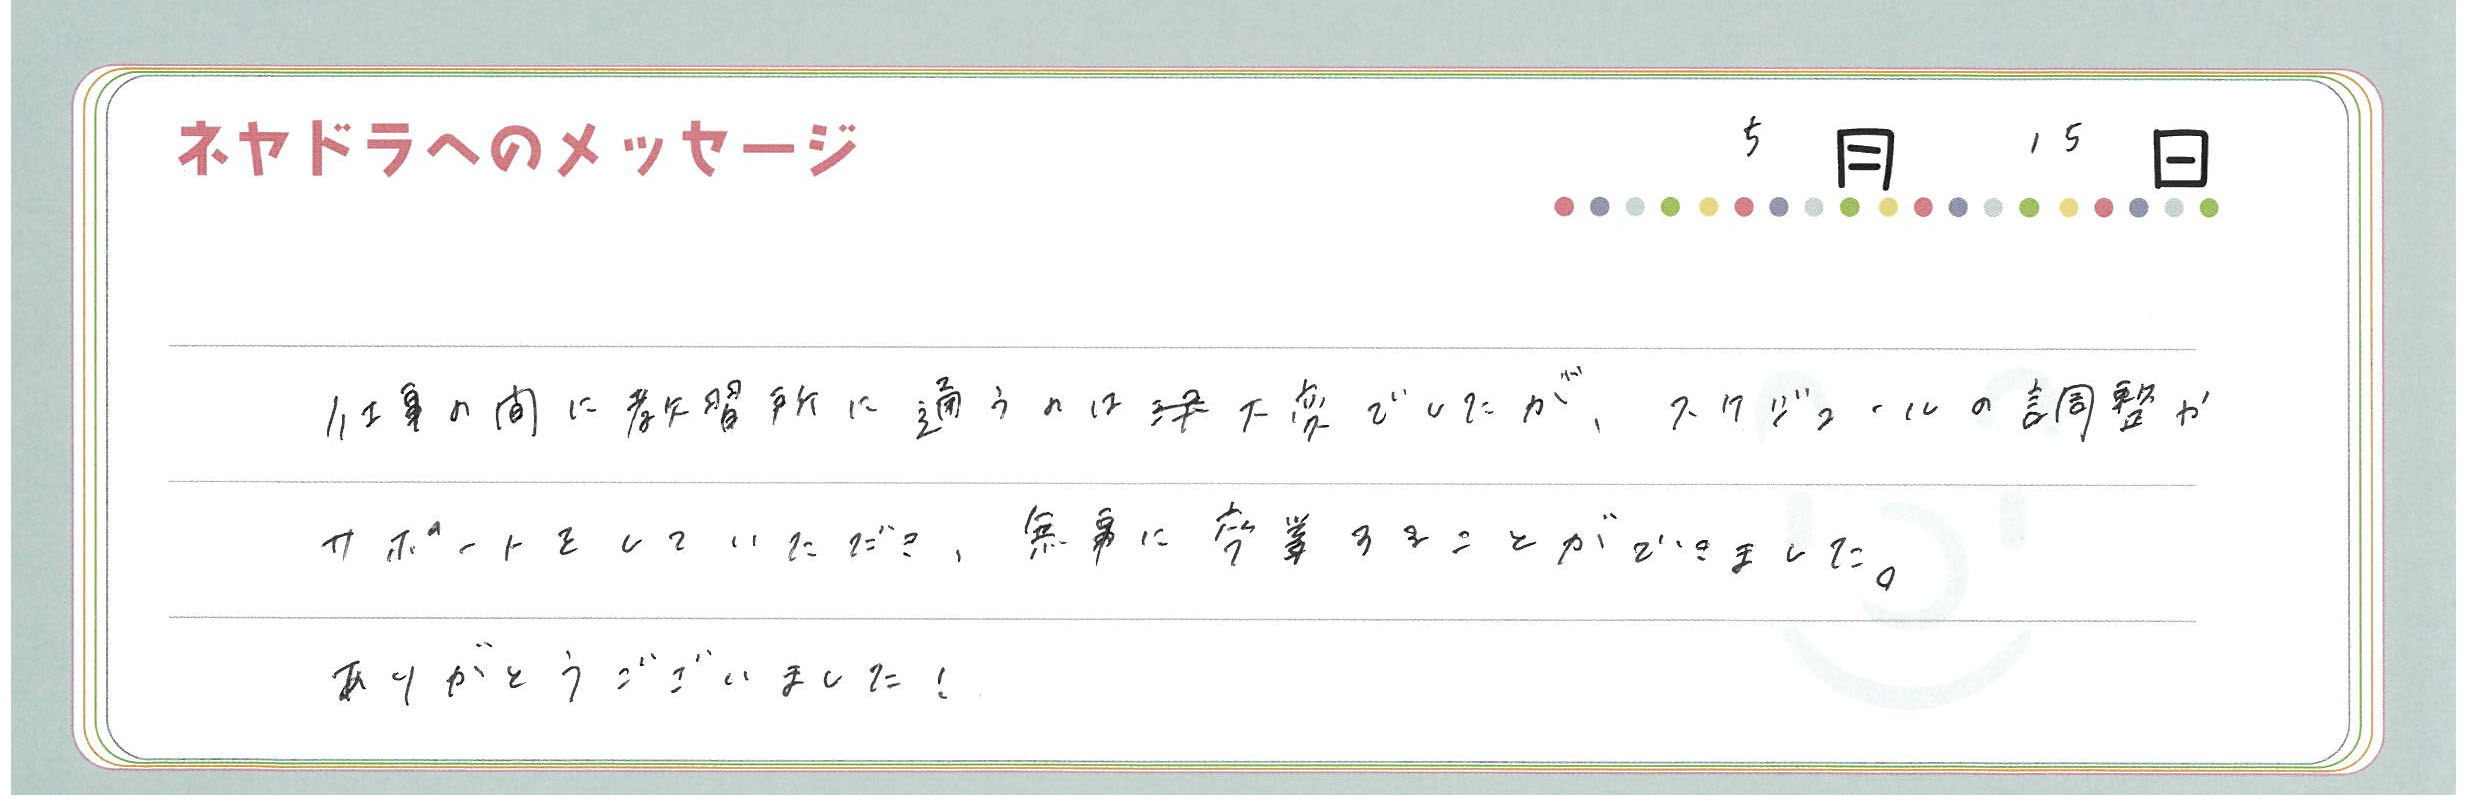 ネヤドラへのメッセージ
5月 15日
仕事の間に教習所に通うのは大変でしたが、スケジュールの調整や
サポートをしていただき、無事に卒業することができました。
ありがとうございました!